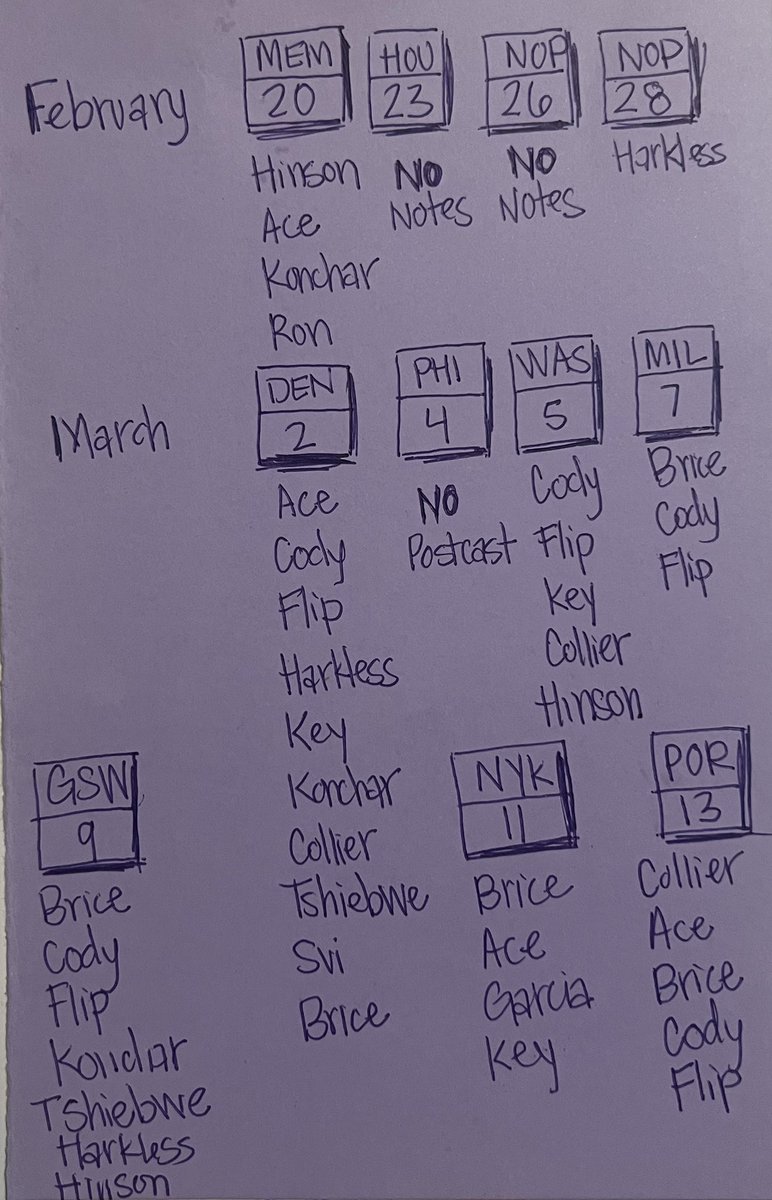 February
MEM
20
Hinson
Ace
Konchar
Ron
HOU
23
NO
Notes
NOP
26
NO
Notes
NOP
28
Harkless
March
DEN
2
Ace
Cody
Flip
Harkless
Key
Konchar
Collier
Tshiebwe
Svi
Brice
PHI
4
NO
Postcast
WAS
5
Cody
Flip
Key
Collier
Hinson
MIL
7
Brice
Cody
Flip
GSW
9
Brice
Cody
Flip
Konchar
Tshiebwe
Harkless
Hinson
NYK
11
Brice
Ace
Garcia
Key
POR
13
Collier
Ace
Brice
Cody
Flip